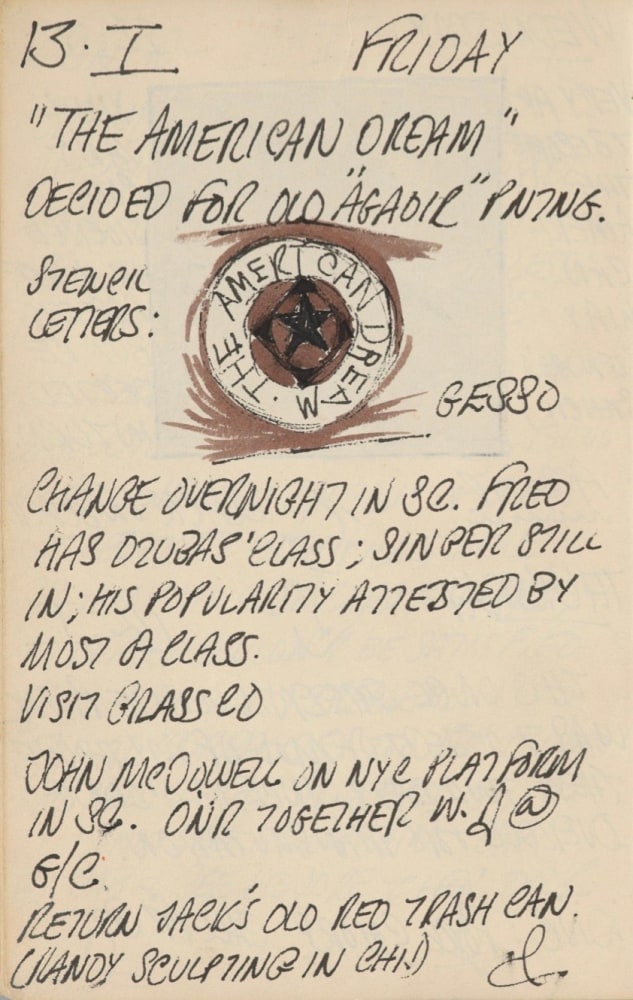 13. I FRIDAY
"THE AMERICAN DREAM"
DECIDED FOR OLD "AGADIR" PNTNG.
STENCIL
LETTERS:
THE AMERICAN DREAM ·
GESSO
CHANGE OVERNIGHT IN SC. FRED
HAS DZUBAS' CLASS; SINGER STILL
IN; HIS POPULARITY ATTESTED BY
MOST OF CLASS.
VISIT GRASS CO
JOHN McDOWELL ON NYC PLATFORM
IN SC. DNR TOGETHER W. J @
G/C.
RETURN JACK'S OLD RED TRASH CAN.
(RANDY SCULPTING IN CHI!)